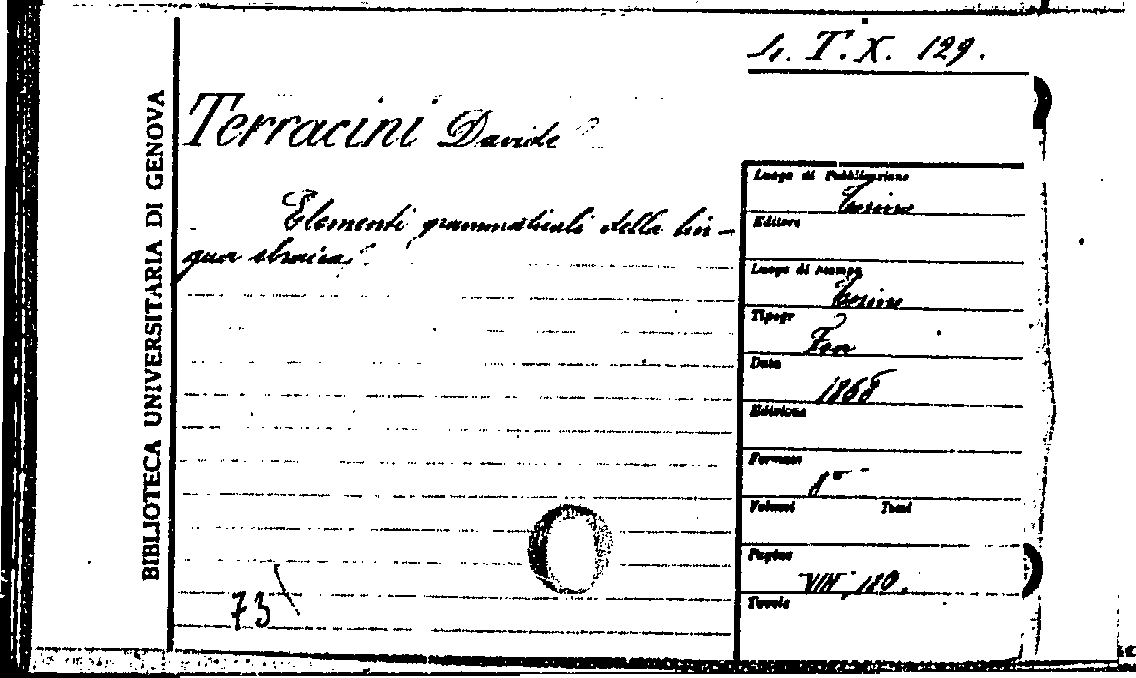 4. T. X. 129.
BIBLIOTECA UNIVERSITARIA DI GENOVA
Terracini Davide
Elementi grammaticali della lin-
gua ebraica.
Luogo di Pubblicazione
Torino
Editore
Luogo di stampa
Torino
Tipogr
Foa
Data
1868
Edizione
Formato
8°
Volumi Tomi
Pagine
VIII, 180.
Tavole
73